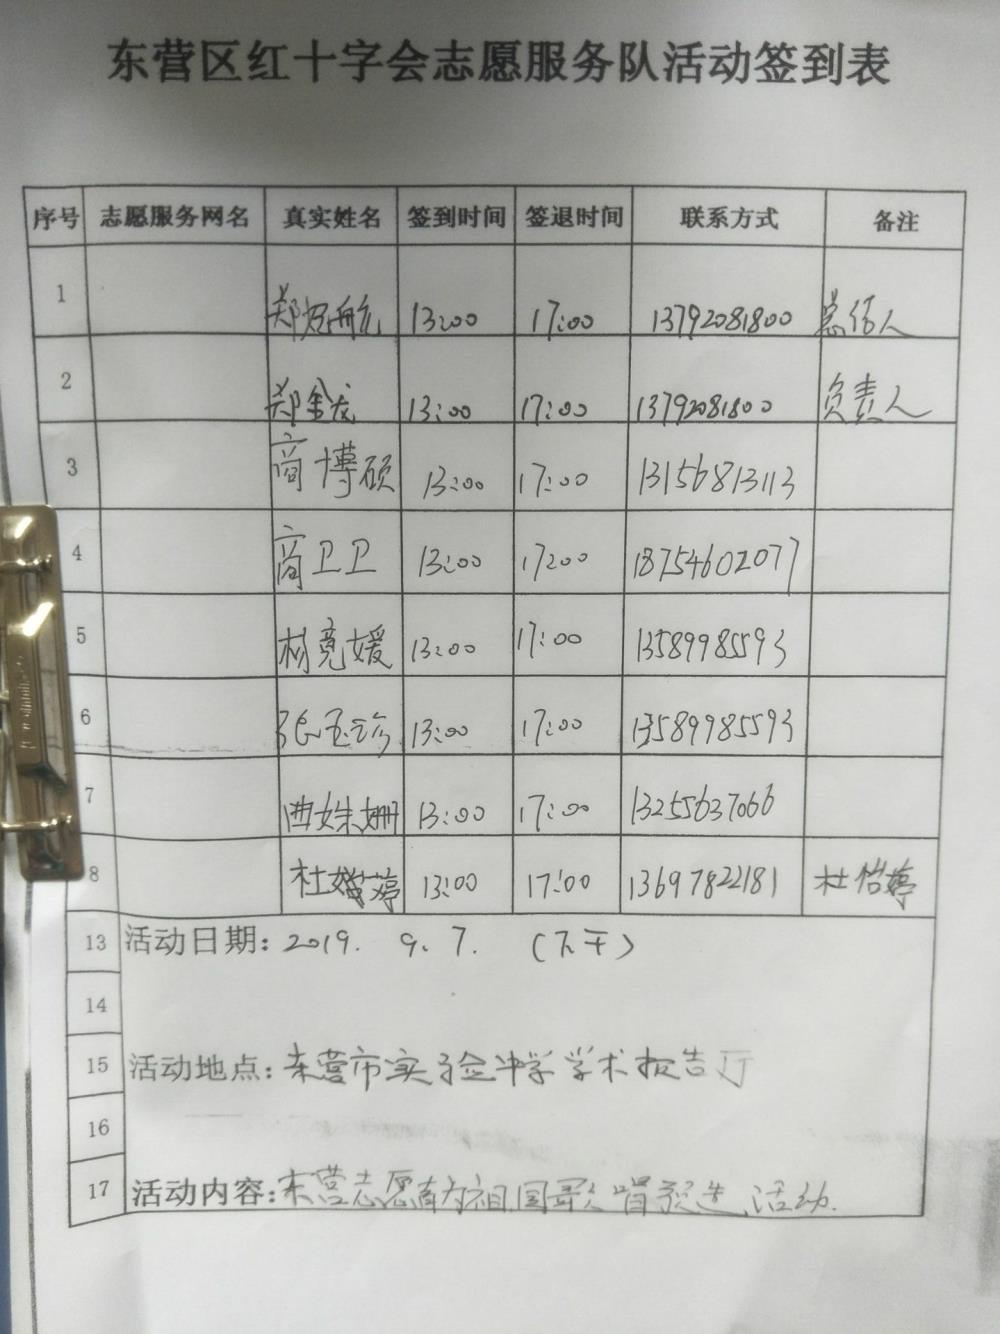 东营区红十字会志愿服务队活动签到表
序号 志愿服务网名 真实姓名 签到时间 签退时间 联系方式 备注
1 郑 航 13:00 17:00 13792081800 人
2 郑金龙 13:00 17:00 13792081800 负责人
3 商博硕 13:00 17:00 13156813113
4 商卫卫 13:00 17:00 18754602077
5 杨竟媛 13:00 17:00 13589985593
6 张玉珍 13:00 17:00 13589985593
7 曲姝姗 13:00 17:00 13255637066
8 杜 婷 13:00 17:00 13697822181 杜怡婷
13 活动日期: 2019. 9. 7. (下午)
14
15 活动地点: 东营市实验中学学术报告厅
16
17 活动内容: 东营志愿者为祖国歌唱预选活动.